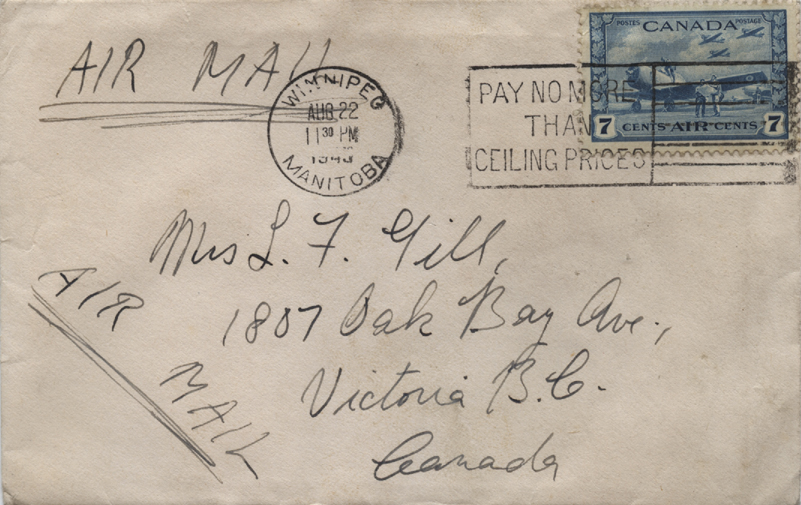 AIR MAIL
POSTES CANADA POSTAGE
7 CENTS·AIR·CENTS 7
WINNIPEG
AUG 22
11 30 PM
1943
MANITOBA
PAY NO MORE
THAN
CEILING PRICES
Mrs L. F. Gill,
1807 Oak Bay Ave.,
Victoria B.C.
Canada
AIR MAIL